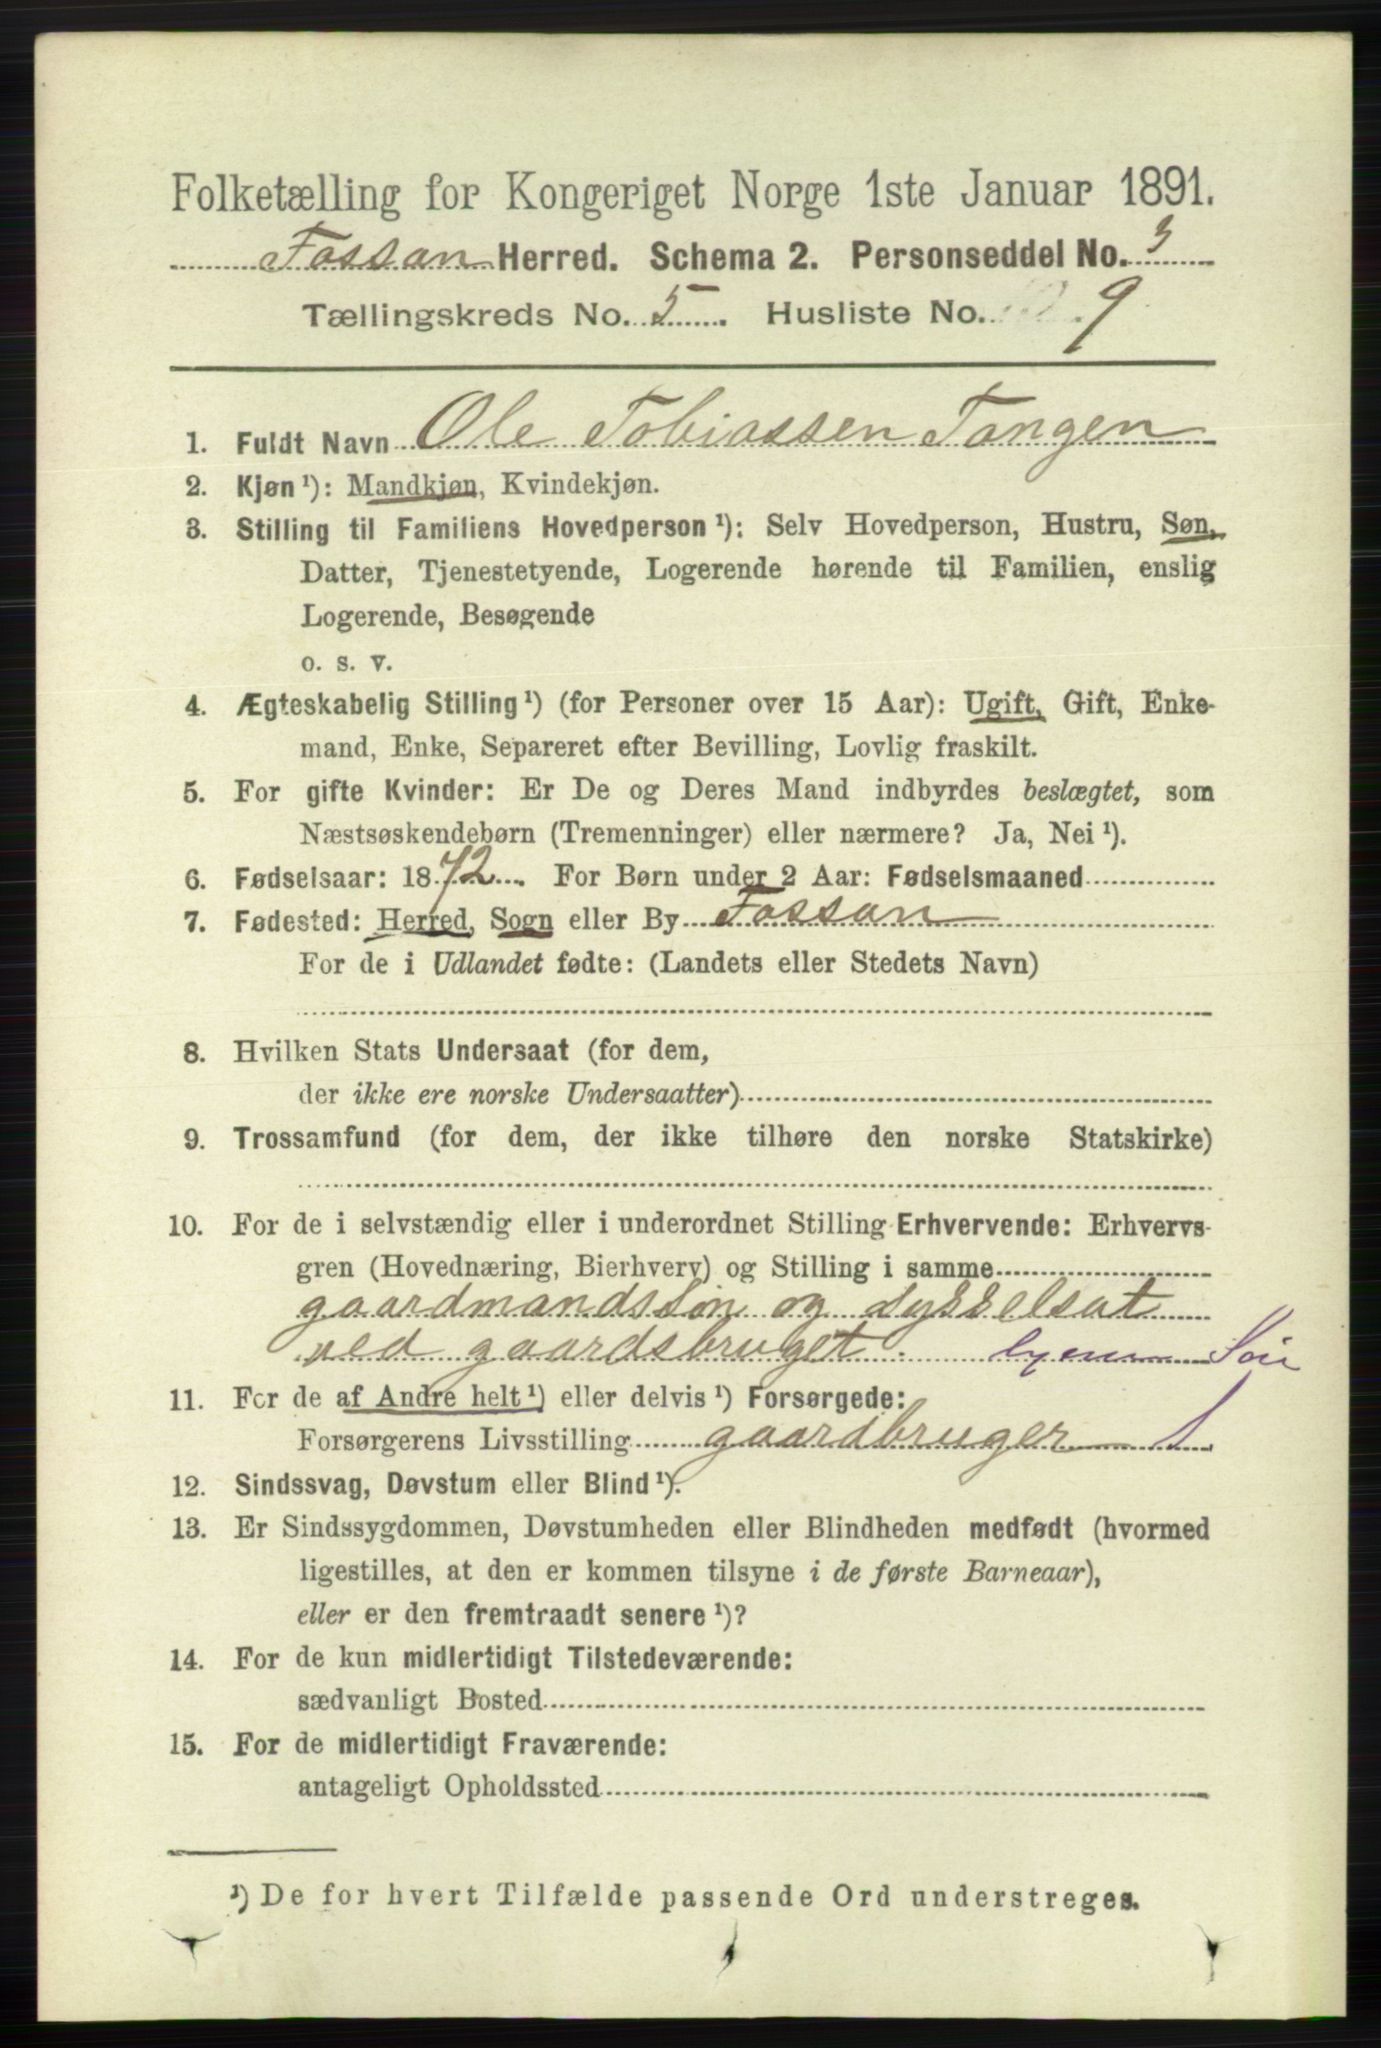 Folketælling for Kongeriget Norge 1ste Januar 1891.
Fossan Herred. Schema 2. Personseddel No. 3
Tællingskreds No. 5. Husliste No. 9
1. Fuldt Navn Ole Tobiassen Tangen
2. Kjøn ¹): Mandkjøn, Kvindekjøn.
3. Stilling til Familiens Hovedperson ¹): Selv Hovedperson, Hustru, Søn,
Datter, Tjenestetyende, Logerende hørende til Familien, enslig
Logerende, Besøgende
o. s. v.
4. Ægteskabelig Stilling ¹) (for Personer over 15 Aar): Ugift, Gift, Enke-
mand, Enke, Separeret efter Bevilling, Lovlig fraskilt.
5. For gifte Kvinder: Er De og Deres Mand indbyrdes beslægtet, som
Næstsøskendebørn (Tremenninger) eller nærmere? Ja, Nei ¹).
6. Fødselsaar: 1872. For Børn under 2 Aar: Fødselsmaaned
7. Fødested: Herred, Sogn eller By Fossan
For de i Udlandet fødte: (Landets eller Stedets Navn)
8. Hvilken Stats Undersaat (for dem,
der ikke ere norske Undersaatter)
9. Trossamfund (for dem, der ikke tilhøre den norske Statskirke)
10. For de i selvstændig eller i underordnet Stilling Erhvervende: Erhvervs-
gren (Hovednæring, Bierhverv) og Stilling i samme
gaardmandssøn og sysselsat
ved gaardsbruget.
11. For de af Andre helt ¹) eller delvis ¹) Forsørgede:
Forsørgerens Livsstilling gaardbruger 1
12. Sindssvag, Døvstum eller Blind ¹).
13. Er Sindssygdommen, Døvstumheden eller Blindheden medfødt (hvormed
ligestilles, at den er kommen tilsyne i de første Barneaar),
eller er den fremtraadt senere ¹)?
14. For de kun midlertidigt Tilstedeværende:
sædvanligt Bosted
15. For de midlertidigt Fraværende:
antageligt Opholdssted
¹) De for hvert Tilfælde passende Ord understreges.